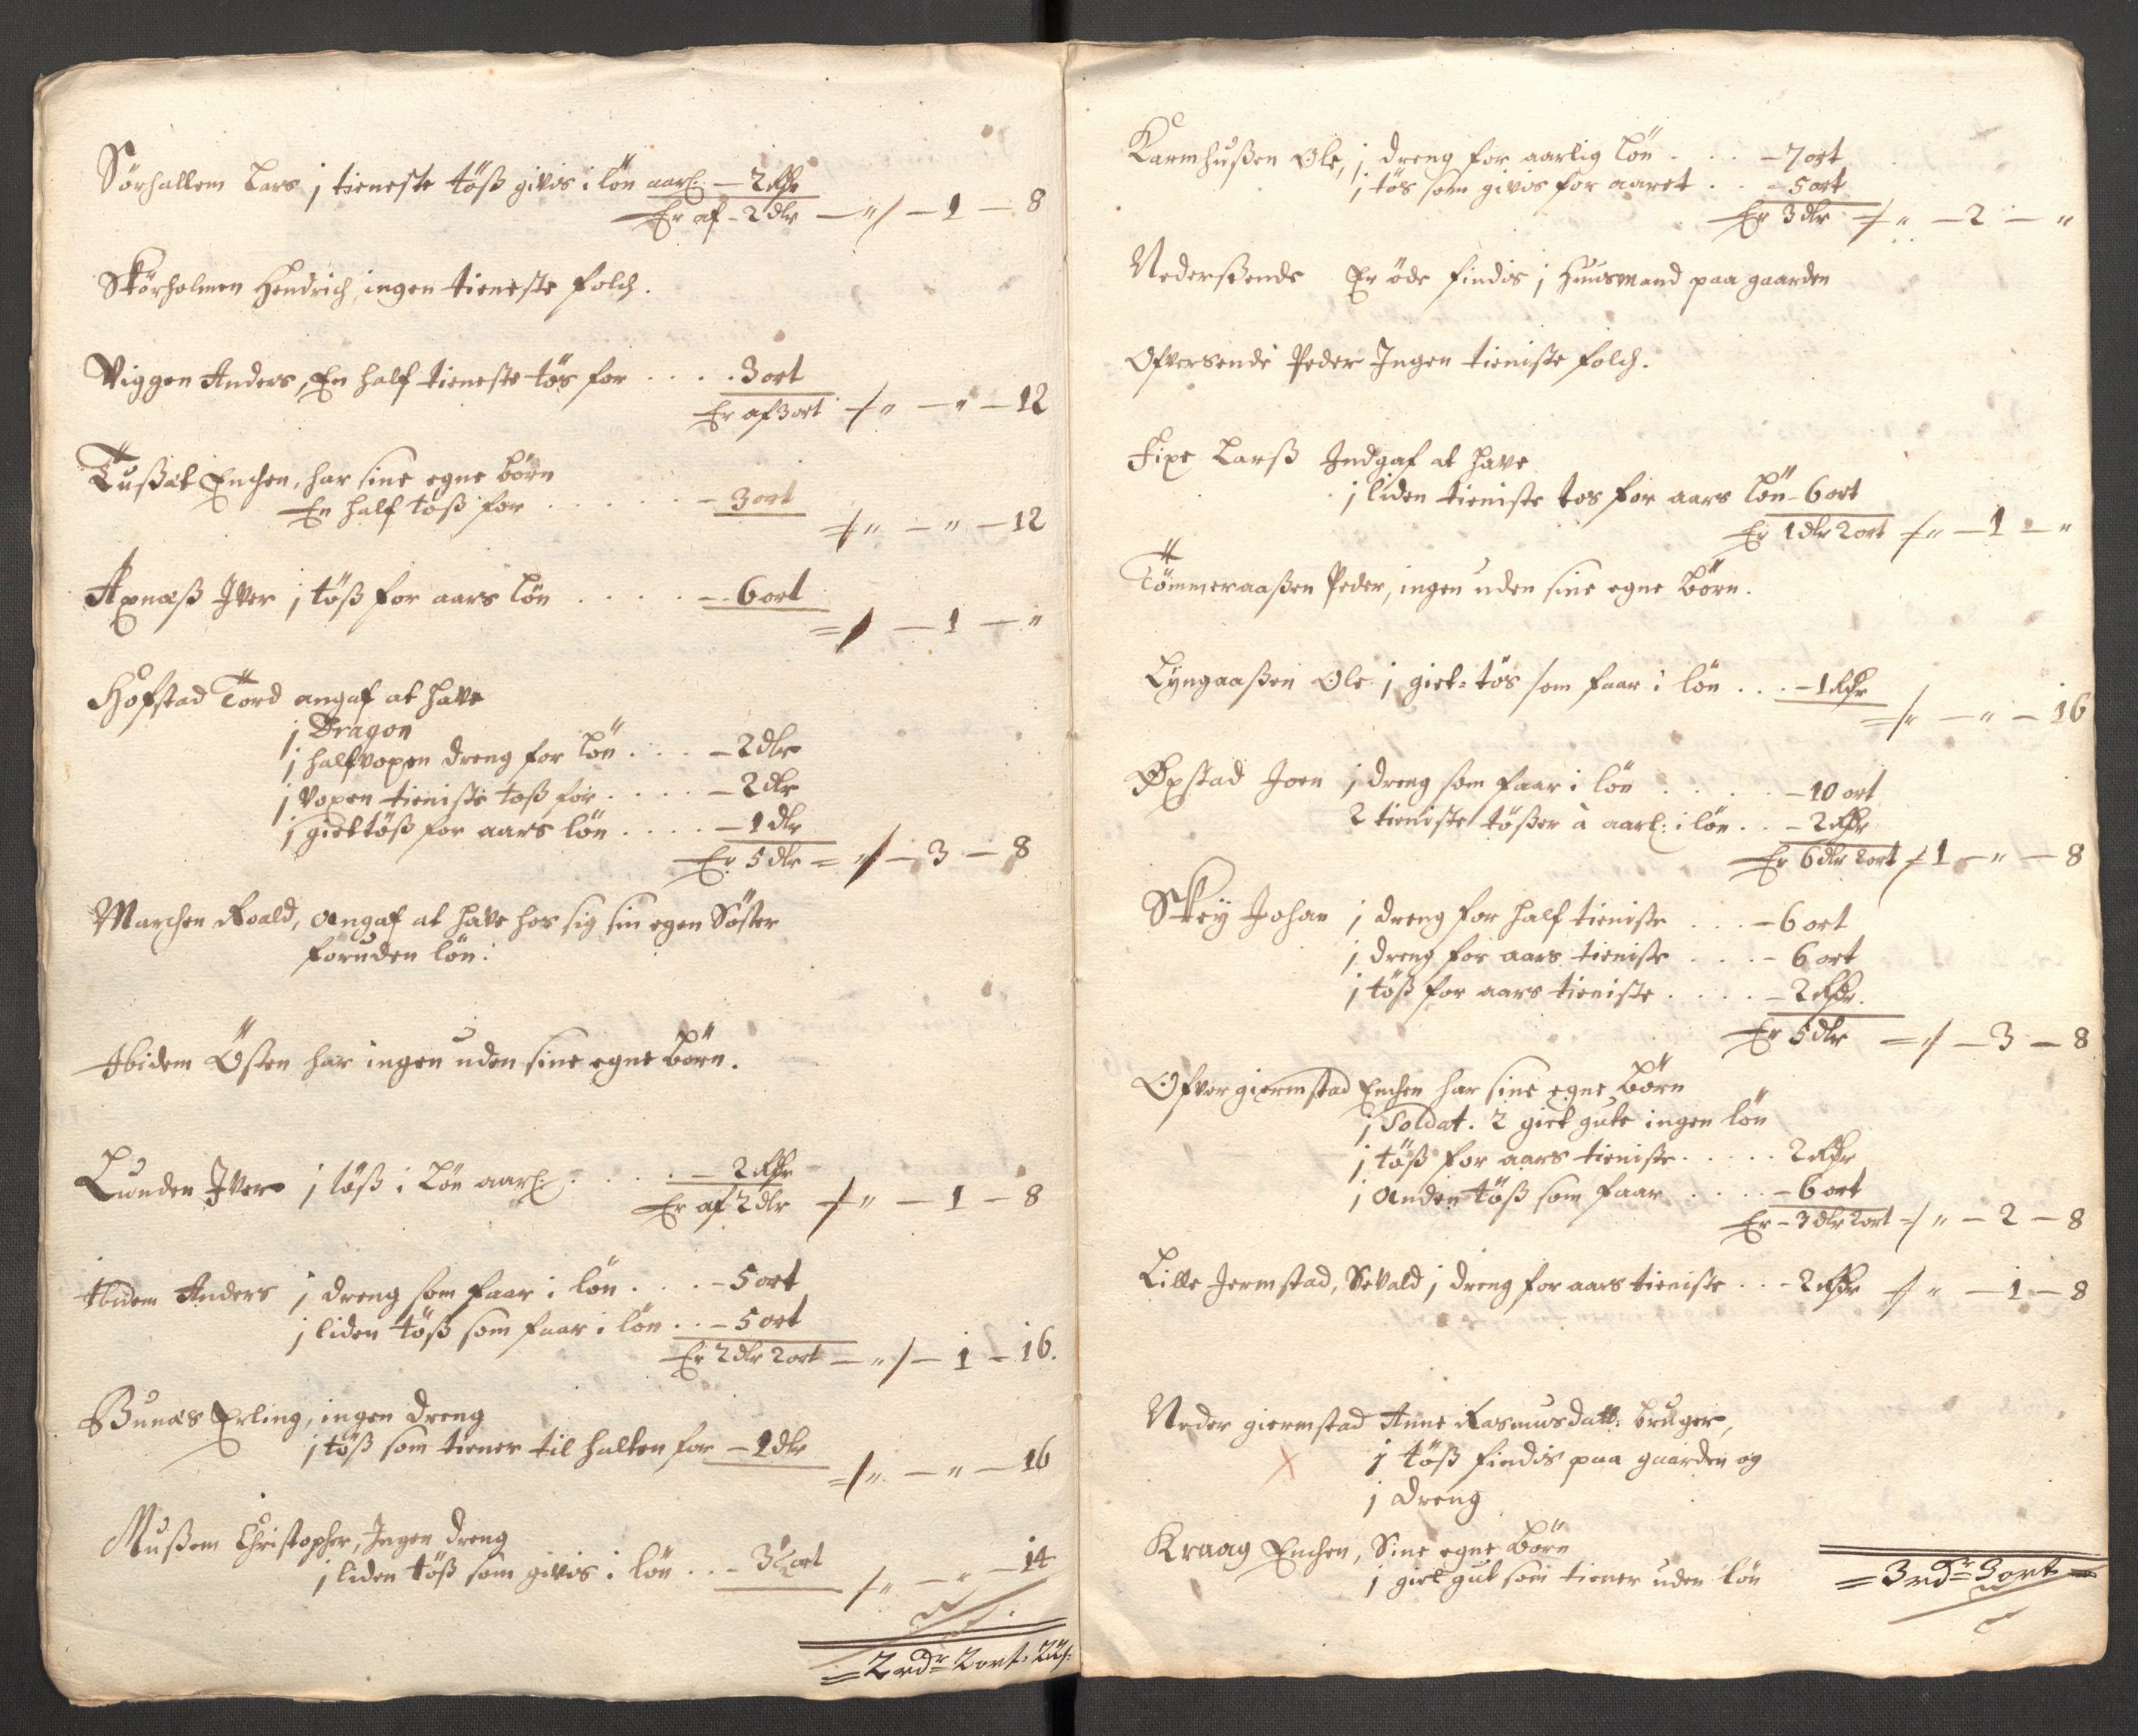 Sörhallem Lars j tieneste töß givis i lön aarl: — 2 Rdr
Er af - 2 dlr — " / — 1 — 8
Skörholmen Hendrich, ingen tieneste folch.
Viggen Anders, En half tieneste tös for . . . . 3 ort
Er af 3 ort / " — " — 12
Tußet Enchen, har sine egne börn
En half töß for . . . . . . — 3 ort
/ " — " — 12
Apnæß Iver j töß for aars lön . . . . . — 6 ort
= / — 1 — "
Hofstad Tord angaf at have
j Dragon
j halfvoxen dreng for lön . . . — 2 dlr
j voxen tieniste töß for . . . . — 2 dlr
j gieltöß for aars lön . . . . — 1 dlr
Er 5 dlr = " / — 3 — 8
Marchen Roald, angaf at have hos sig sin egen Söster
foruden lön.
Ibidem Östen har ingen uden sine egne börn.
Lunden Iver j töß i lön aarl: . . . . — 2 Rdr
Er af 2 dlr / " — 1 — 8
Ibidem Anders j dreng som faar i lön . . . — 5 ort
j liden töß som faar i lön . . — 5 ort
Er 2 dlr 2 ort — " / — 1 — 16.
Bunæs Erling, ingen dreng
j töß som tiener til halten for — 1 dlr
= / " — " — 16
Mußem Christopher, Ingen dreng
j liden töß som givis i lön . . — 3½ ort
/ " — " — 14
= 2 rdr 2 ort: 22 s:
Karmhußen Ole, j dreng for aarlig lön . . . — 7 ort
j tös som givis for aaret . . — 5 ort
Er 3 dlr / " — 2 — "
Nederßende Er öde findis j Huusmand paa gaarden
Ofversende Peder Ingen tieniste folch.
Fixe Larß Indgaf at have
j liden tieniste tos for aars lön — 6 ort
Er 1 dlr 2 ort / " — 1 — "
Tömmeraaßen Peder, ingen uden sine egne börn.
Lyngaaßen Ole j giet-tös som faar i lön . . . — 1 Rdr
= / " — " — 16
Øxstad Joen j dreng som faar i lön . . . . . — 10 ort
2 tieniste tößer à aarl: i lön . . — 2 Rdr
Er 6 dlr 2 ort / 1 — " — 8
Skey Johan j dreng for half tieniste . . . — 6 ort
j dreng for aars tieniste . . . . — 6 ort
j töß for aars tieniste . . . . — 2 Rdr.
Er 5 dlr = / — 3 — 8
Ofver giermstad Enchen har sine egne börn
j Soldat. 2 giet gute ingen lön
j töß for aars tieniste . . . . . 2 Rdr
j anden töß som faar . . . . — 6 ort
Er — 3 dlr 2 ort / " — 2 — 8
Lille Jermstad, Sevald j dreng for aars tieniste . . — 2 Rdr / " — 1 — 8
Neder giermstad Anne Rasmusdatt: bruger,
j töß findis paa gaarden og
j dreng
Kraag Enchen, Sine egne börn
j giet gut som tiener uden lön
= 3 rdr 3 ort =